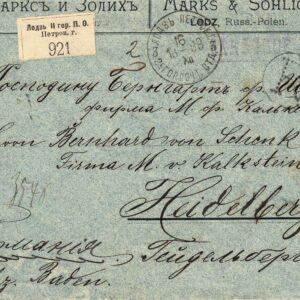 МАРКСЪ и ЗОЛИХЪ
MARKS & SOHLICH
LODZ, Russ.-Polen.
Лодзь II гор. П. О.
Петрок. г.
921
2
Господину Бернгарт ф.
фирма М. ф. Кальк
von Bernhard von Schenk
Firma M. v. Kalkstein
3548
Heidelberg
рмания Гейдельберг
Baden.